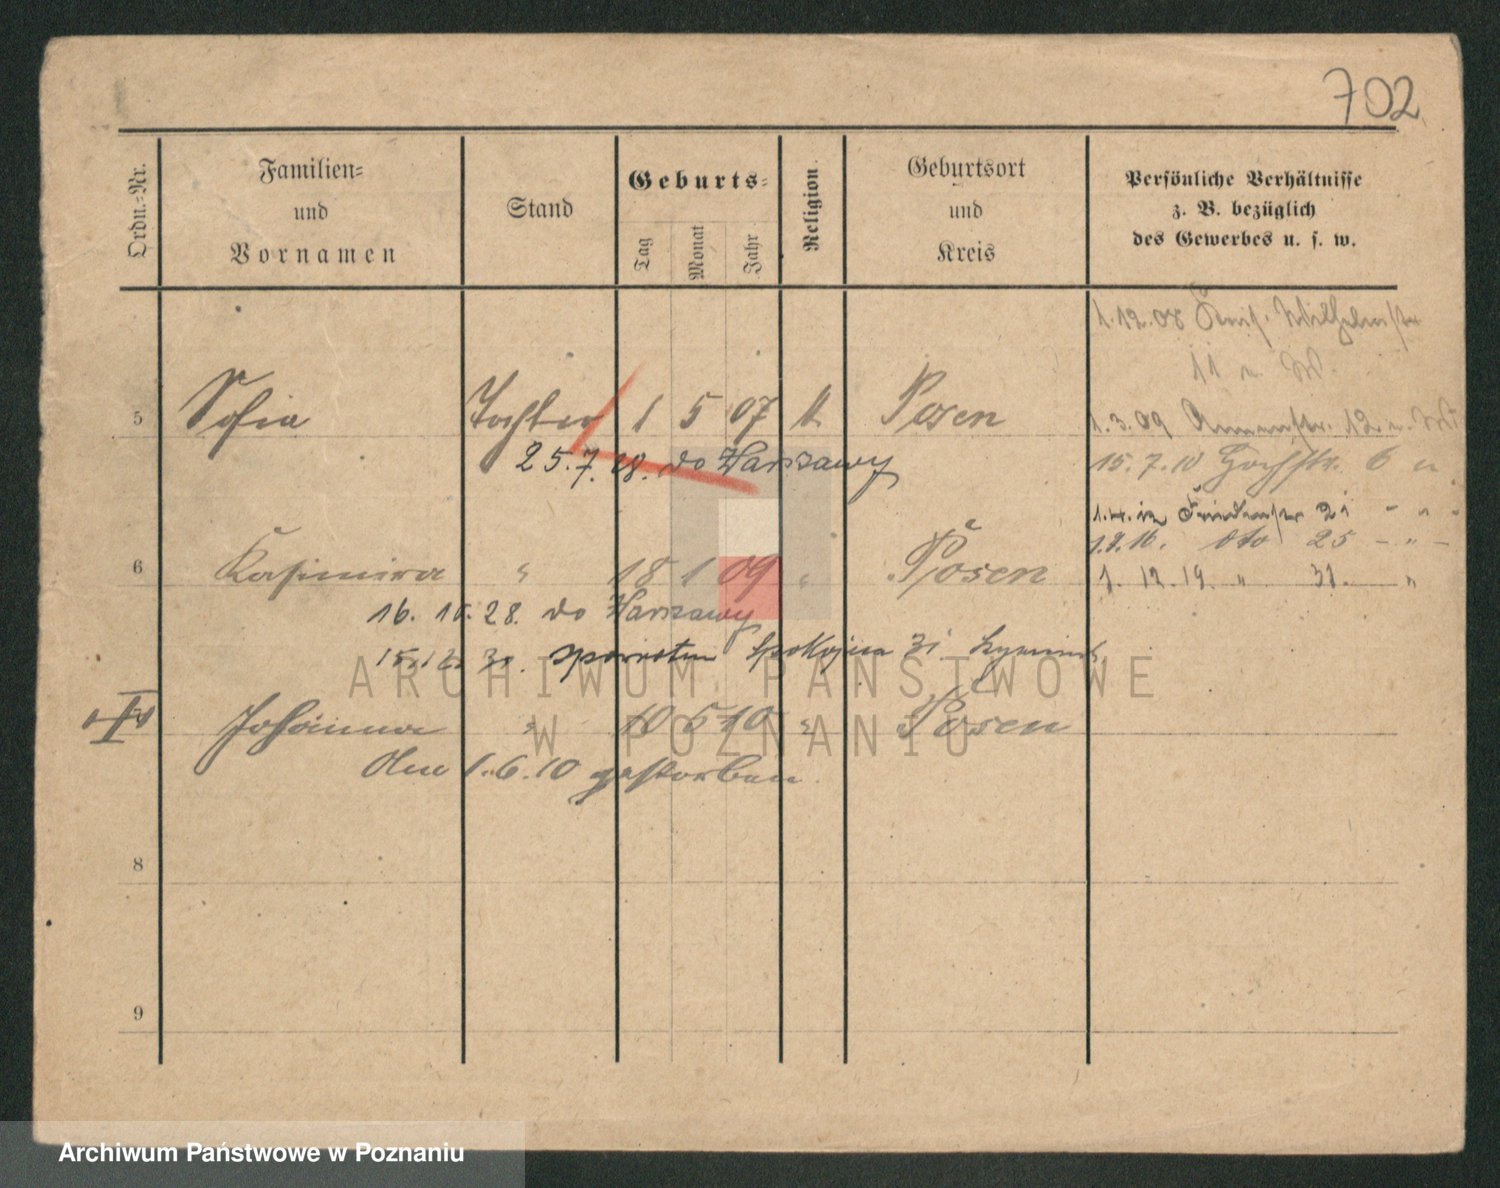 702
Ordn.-Nr.
Familien-
und
Vornamen
Stand
Geburts-
Tag
Monat
Jahr
Religion
Geburtsort
und
Kreis
Persönliche Verhältnisse
z. B. bezüglich
des Gewerbes u. s. w.
1.12.08 Wilhelmstr
11 n. W.
5 Sofia Tochter 1 5 07 k. Posen
1.3.09 12
25.7.28. do Warszawy
15.7.10 Hochstr. 6
21
6 Kasimira " 18 1 09 " Posen
dto 25 - " -
1. 12. 19. " 31. "
16. 10. 28. do Warszawy
spowrotem Spokojna 31
Johanna " 10 5 10 " Posen
1.6.10 gestorben
8
9
ARCHIWUM PAŃSTWOWE
W POZNANIU
Archiwum Państwowe w Poznaniu